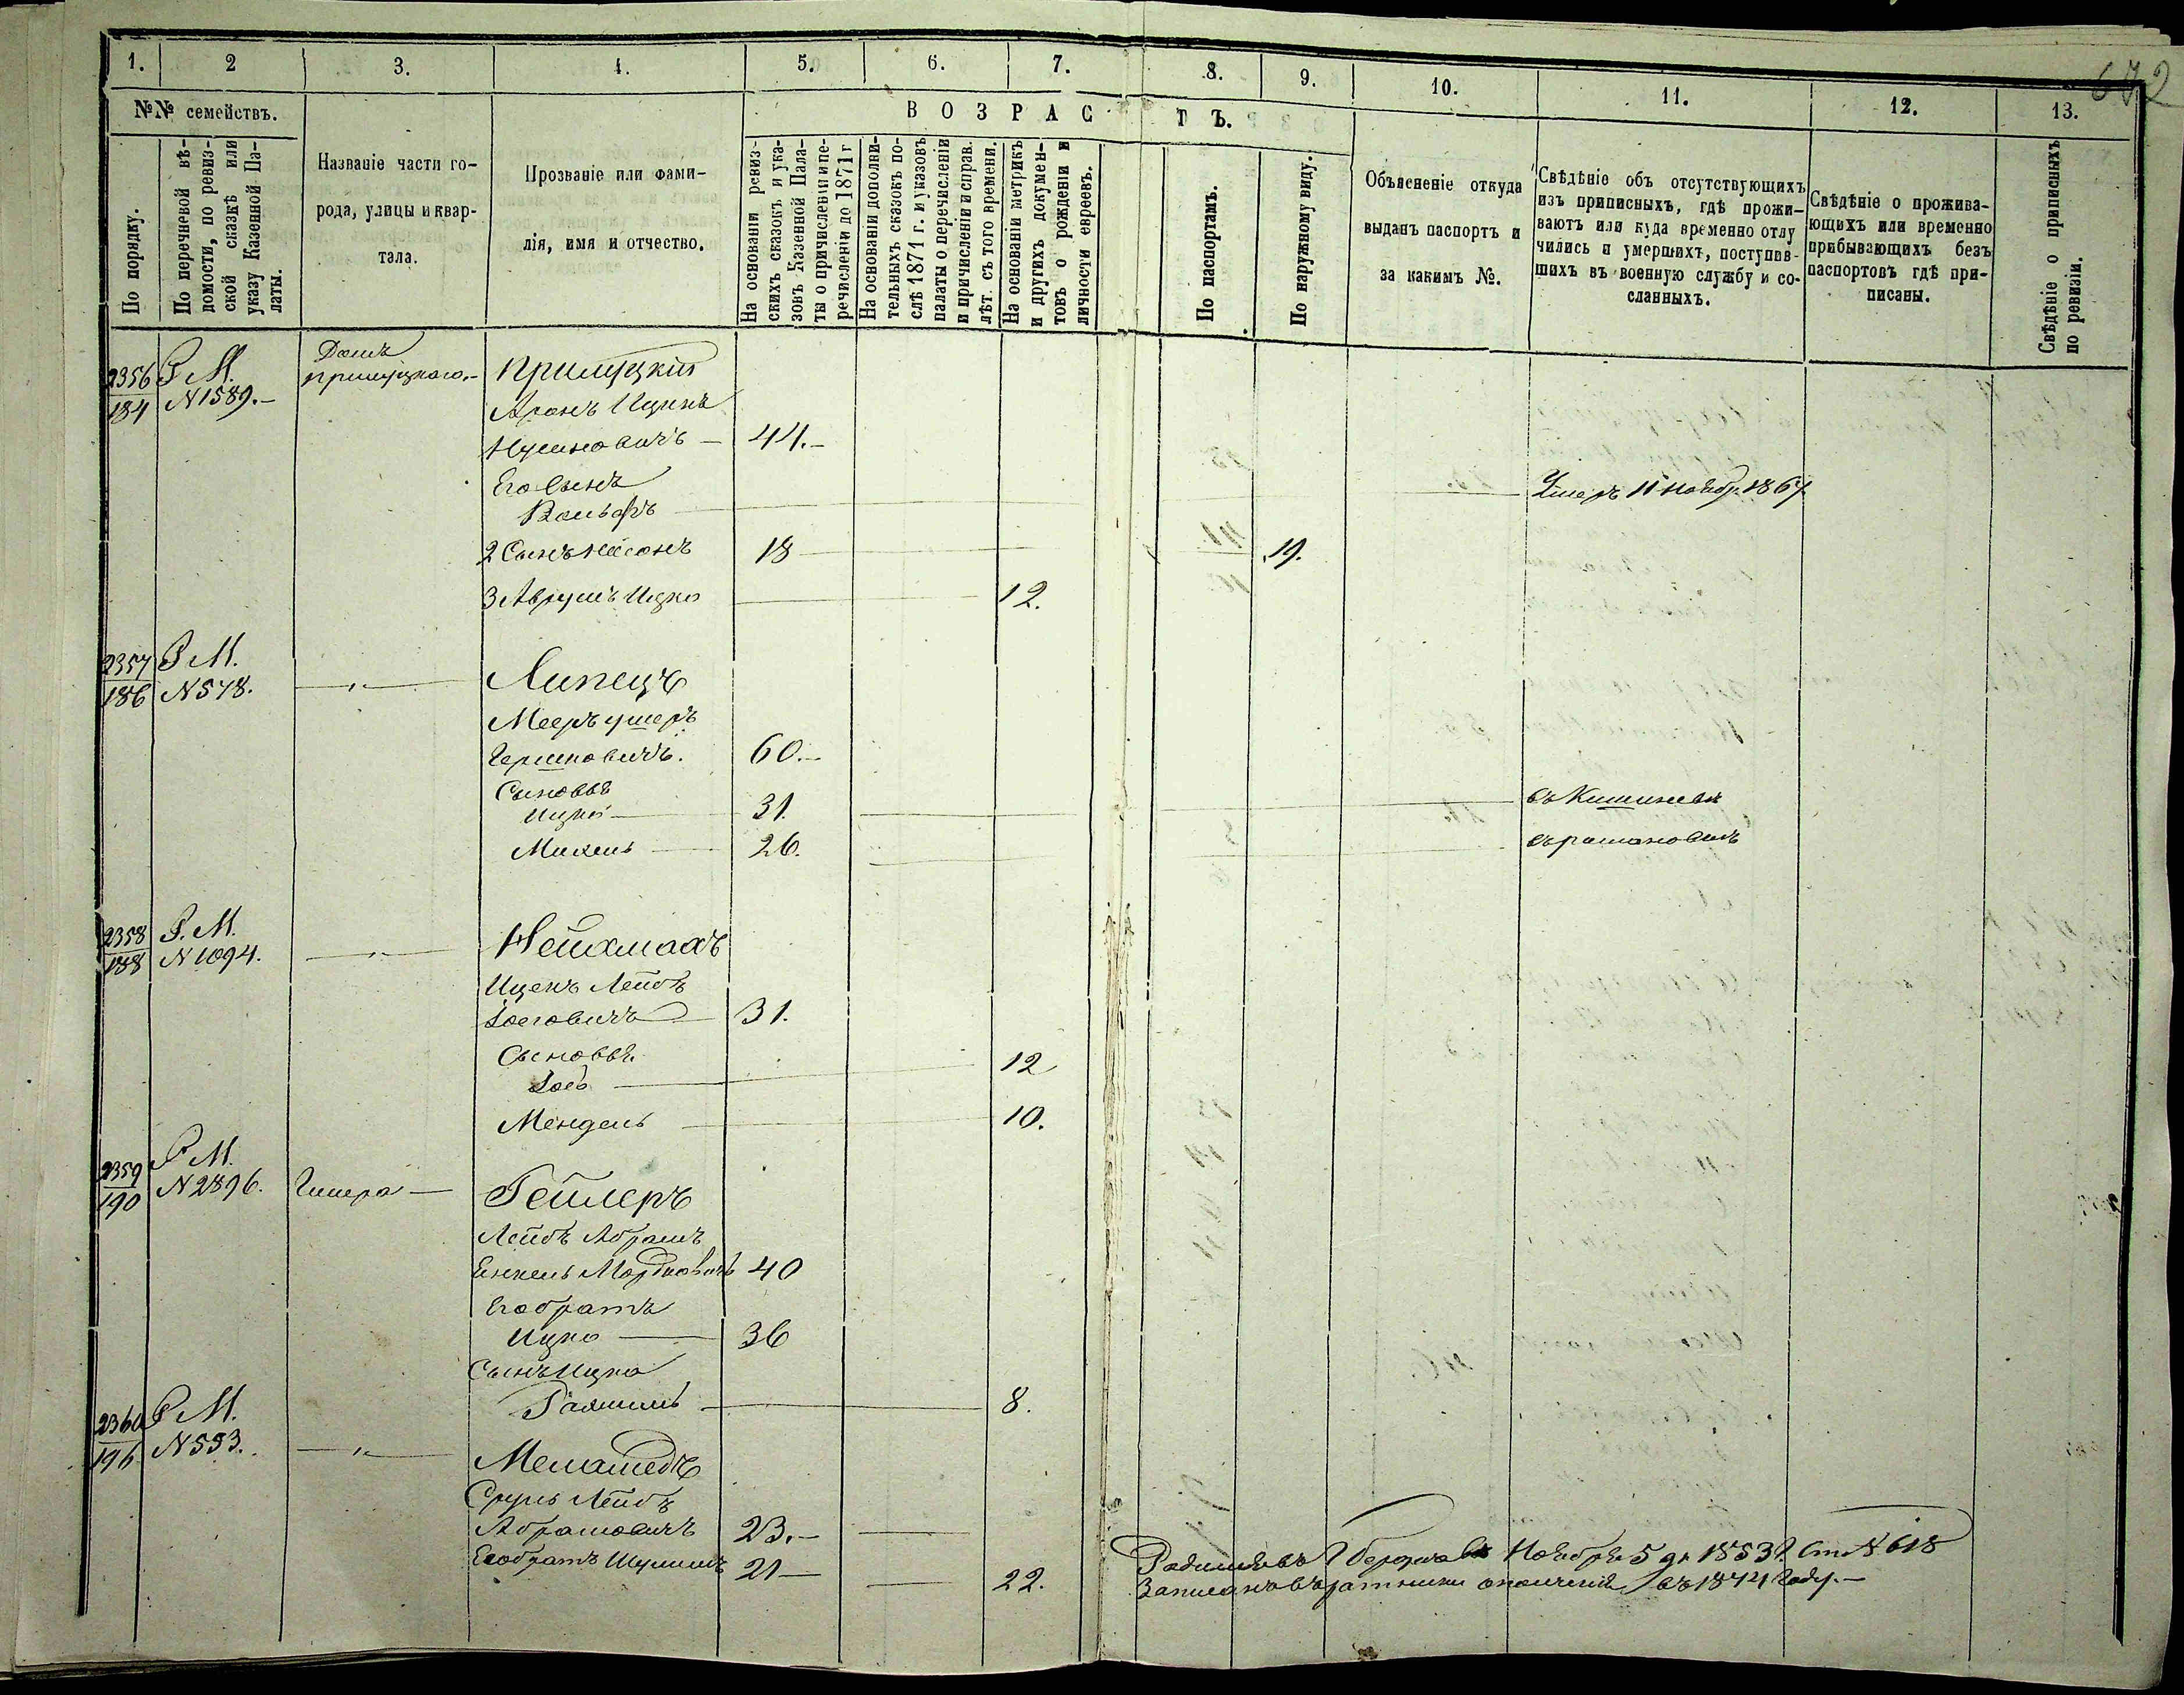 672
1. 2 3. 4. 5. 6. 7. 8. 9. 10. 11. 12. 13.
№№ семействъ.
В О З Р А С Т Ъ.
По порядку.
По перечневой вѣ-
домости, по ревиз-
ской сказкѣ или
указу Казенной Па-
латы.
Названіе части го-
рода, улицы и квар-
тала.
Прозваніе или фами-
лія, имя и отчество.
На основаніи ревиз-
скихъ сказокъ и ука-
зовъ Казенной Пала-
ты о причисленіи и пе-
речисленіи до 1871 г
На основаніи дополни-
тельныхъ сказокъ по-
слѣ 1871 г. и указовъ
палаты о перечисленіи
и причисленіи и справ.
лѣт. съ того времени.
На основаніи метрикъ
и другихъ докумен-
товъ о рожденіи и
личности евреевъ.
По паспортамъ.
По наружному виду.
Объясненіе откуда
выданъ паспортъ и
за какимъ №.
Свѣдѣніе объ отсутствующихъ
изъ приписныхъ, гдѣ прожи-
ваютъ или куда временно отлу
чились и умершихъ, поступив-
шихъ въ военную службу и со-
сланныхъ.
Свѣдѣніе о прожива-
ющихъ или временно
прибывающихъ безъ
паспортовъ гдѣ при-
писаны.
Свѣдѣніе о приписныхъ
по ревизіи.
2356 Р М. Домъ
184 N 1589.- Прилуцкаго.- Прилуцкій
Аронъ Ицикъ
Нусимовичъ - 44.-
Его Сынъ
Вольфъ Умеръ 11 Ноябр. 1867
2 Сынъ Нисонъ 18 19.
3 Аврумъ Ицко 12.
2357 Р М.
186 N 578. - " - Липецъ
Мееръ Ушеръ
Гершковичъ. 60.-
Сыновья
Ицко 31. въ Кишиневѣ
Михель 26. въ Рашановкѣ
2358 Р. М.
188 N 1094. - " - Нейхмахъ
Ицекъ Лейбъ
Іосіовичъ 31.
Сыновья
Іось 12
Мендель 10.
2359 Р М.
190 N 2896. Гилера - Гейлеръ
Лейбъ Абрамъ
Енкель Мордковичъ 40
Его братъ
Ицко 36
Сынъ Ицка
Рахмиль 8.
2360 Р М.
196 N 553. - " - Меламедъ
Сруль Лейбъ
Абрамовичъ 23.-
Его братъ Шулимъ 21 - 22.
Родился въ Г. Ноября 5 дн 1853 г. Ст. N 618
Записанъ въ ратники ополченія въ 1874 Году.-